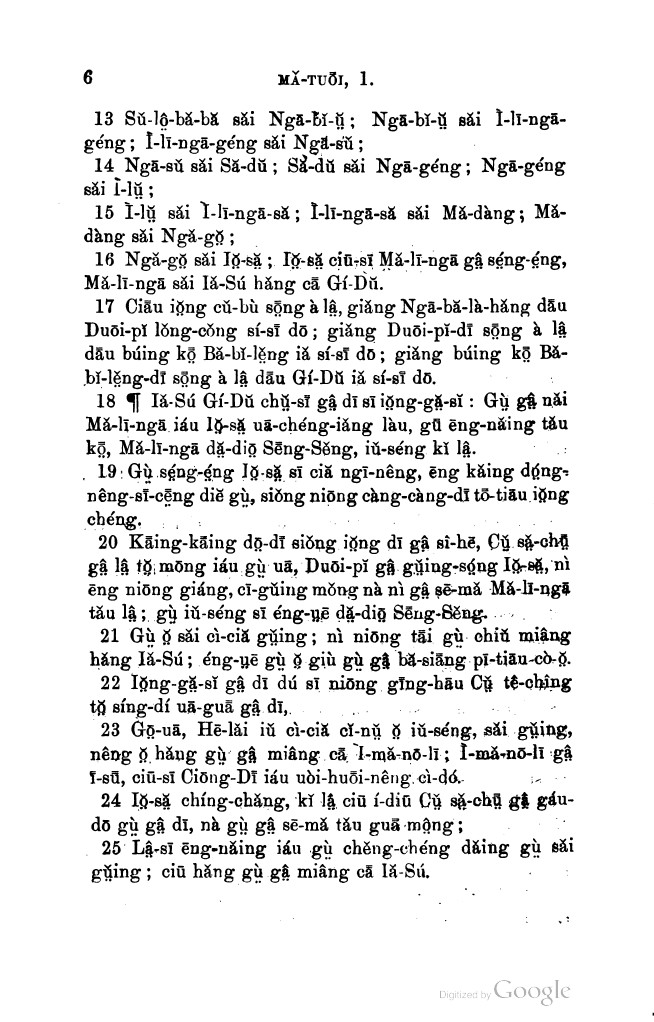 6 MĂ-TUŌI, 1.
13 Sŭ-lô̤-bă-bă săi Ngā-bī-ṳ̆; Ngā-bĭ-ṳ̆ săi Ì-lī-ngā-
géng; Ì-lī-ngā-géng săi Ngā-sŭ;
14 Ngā-sŭ săi Să-dŭ; Să-dŭ săi Ngā-géng; Ngā-géng
săi Ì-lṳ̆;
15 Ì-lṳ̆ săi Ì-lī-ngā-să; Ì-lī-ngā-să săi Mă-dàng; Mă-
dàng săi Ngă-gŏ̤;
16 Ngă-gŏ̤ săi Iŏ̤-să̤; Iŏ̤-să̤ ciū-sī Mă-lī-ngā gâ̤ sé̤ng-é̤ng,
Mă-lī-ngā săi Iă-Sú hăng cā Gí-Dŭ.
17 Ciāu iŏ̤ng cŭ-bù sō̤ng à lâ̤, giăng Ngā-bă-là-hăng dāu
Duōi-pĭ lŏng-cŏng sí-sī dō; giăng Duōi-pĭ-dī sō̤ng à lâ̤
dāu búing kō̤ Bă-bĭ-lĕ̤ng iă sí-sī dō; giăng búing kō̤ Bă-
bĭ-lĕ̤ng-dī sō̤ng à lâ̤ dāu Gí-Dŭ iă sí-sī dō.
18 ¶ Iă-Sú Gí-Dŭ chṳ̆-sī gâ̤ dī sī iŏ̤ng-gă̤-sī: Gṳ̀ gâ̤ năi
Mă-lī-ngā iáu Iŏ̤-să̤ uā-chéng-iăng làu, gū ēng-năing tău
kō̤, Mă-lī-ngā dă̤-diō̤ Sēng-Sĕng, iŭ-séng kĭ lâ̤.
19 Gṳ̀ sé̤ng-é̤ng Iŏ̤-să̤ sī ciă ngī-nêng, ēng kăing dé̤ng-
nêng-sī-cē̤ng diĕ gṳ̀, siŏng niōng càng-càng-dī tō-tiāu iŏ̤ng
chéng.
20 Kāing-kāing dō̤-dī siŏng iŏ̤ng dī gâ̤ sì-hē, Cṳ̆ să̤-chṳ̄
gâ̤ lâ̤ tŏ̤ mōng iáu gṳ̀ uā, Duōi-pĭ gâ̤ gṳ̆ing-sé̤ng Iŏ̤-să̤, nì
ēng niōng giáng, cī-gṳ̆ing mŏng nà nì gâ̤ sē̤-mă Mă-lī-ngā
tău lâ̤; gṳ̀ iŭ-séng sī éng-ṳē dă̤-diō̤ Sēng-Sĕng.
21 Gṳ̀ ŏ̤ săi cì-ciă gṳ̆ing; nì niōng tāi gṳ̀ chiŭ miâng
hăng Iă-Sú; éng-ṳē gṳ̀ ŏ̤ giù gṳ̀ gâ̤ bă-siăng pī-tiāu-cò-ŏ̤.
22 Iŏ̤ng-gă̤-sī gâ̤ dī dú sī niōng gīng-hāu Cṳ̆ tê-chîng
tŏ̤ síng-dí uā-guā gâ̤ dī,
23 Gō̤-uā, Hē-lăi iŭ cì-ciă cĭ-nṳ̆ ŏ̤ iŭ-séng, săi gṳ̆ing,
nêng ŏ̤ hăng gṳ̀ gâ̤ miâng cā Ì-mă-nō-lī; Ì-mă-nō-lī gâ̤
ī-sū, ciū-sī Ciōng-Dī iáu uòi-huōi-nêng cì-dó.
24 Iŏ̤-să̤ chíng-chăng, kĭ lâ̤ ciū í-diū Cṳ̆ să̤-chṳ̄ gâ̤ gáu-
dō gṳ̀ gâ̤ dī, nà gṳ̀ gâ̤ sē-mă tău guā mô̤ng;
25 Lâ̤-sī ēng-năing iáu gṳ̀ chĕng-chéng dăing gṳ̀ săi
gṳ̆ing; ciū hăng gṳ̀ gâ̤ miâng cā Iă-Sú.
Digitized by Google